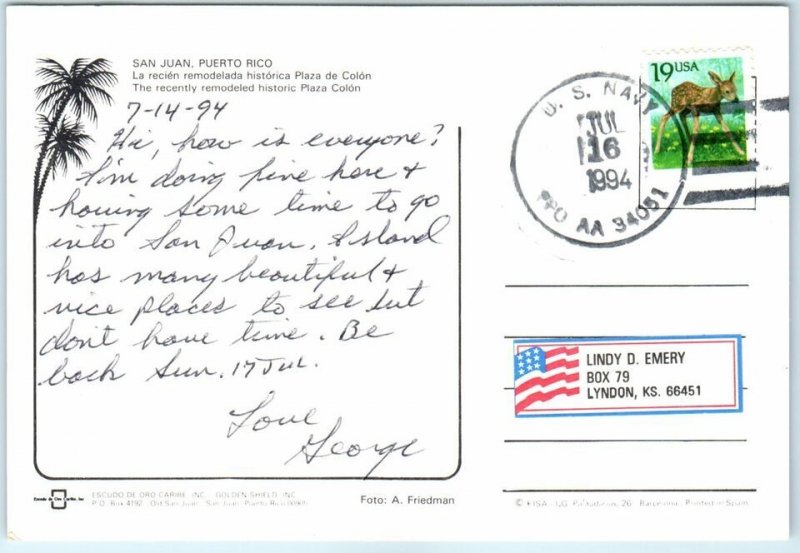 SAN JUAN, PUERTO RICO
La recién remodelada histórica Plaza de Colón
The recently remodeled historic Plaza Colón
7-14-94
Hi, how is everyone?
I'm doing fine here &
having some time to go
into San Juan. Island
has many beautiful &
nice places to see but
don't have time. Be
back Sun. 17 Jul.
Love
George
19 USA
U. S. NAVY
JUL
16
1994
FPO AA 34051
LINDY D. EMERY
BOX 79
LYNDON, KS. 66451
Escudo de Oro Caribe, Inc
ESCUDO DE ORO CARIBE, INC. GOLDEN SHIELD, INC.
P.O. Box 4192 - Old San Juan - San Juan - Puerto Rico
Foto: A. Friedman
© FISA - I.G. 26 - Barcelona - Printed in Spain